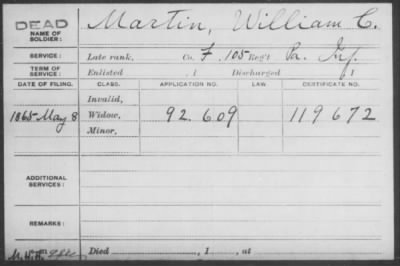 DEAD
NAME OF SOLDIER: Martin, William C.
SERVICE: Late rank, Co. F, 105 Reg't Pa. Inf.
TERM OF SERVICE: Enlisted , 1 Discharged , 1
DATE OF FILING. CLASS. APPLICATION NO. LAW. CERTIFICATE NO.
Invalid,
1865 May 8 Widow, 92.609 119672
Minor,
ADDITIONAL SERVICES:
REMARKS:
Died , 1 , at